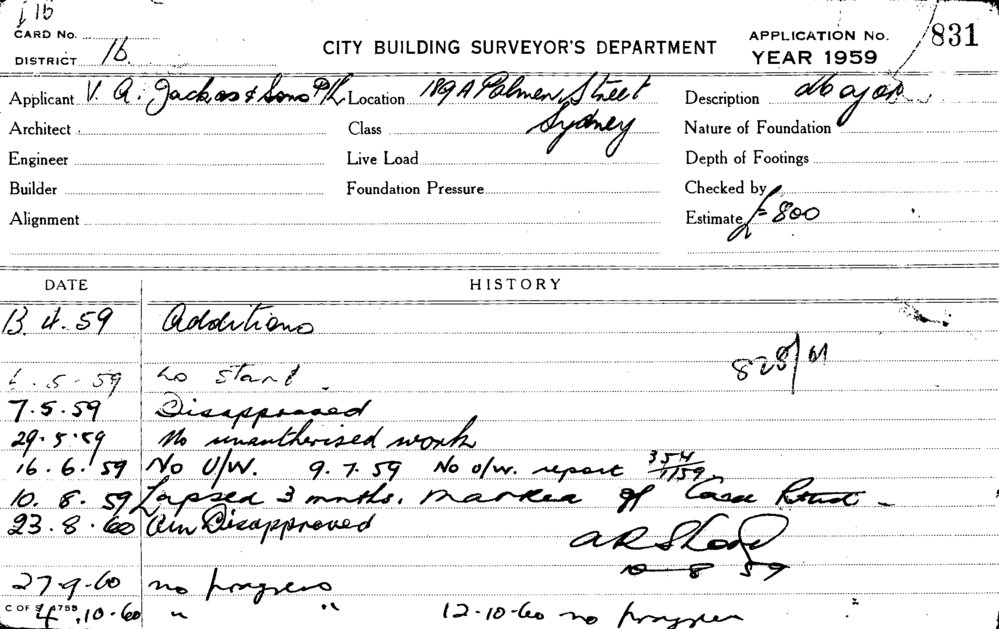 11b
CARD No.
DISTRICT 1b.
CITY BUILDING SURVEYOR'S DEPARTMENT
APPLICATION No. 831
YEAR 1959
Applicant V. A. Jackson & Sons P/L Location 189A Palmer Street Description Major
Architect Class Sydney Nature of Foundation
Engineer Live Load Depth of Footings
Builder Foundation Pressure Checked by
Alignment Estimate £800
DATE HISTORY
13.4.59 Additions
828/61
6.5.59 no start.
7.5.59 Disapproved
29.5.59 No unautherised work
16.6.59 No U/W. 9.7.59 No o/w. report 354/1159
10.8.59 Lapsed 3 mnths. Marked off Card
23.8.60 Disapproved
10 8 59
27.9.60 no progress
C OF S 4.10.60 " " 12-10-60 no progress